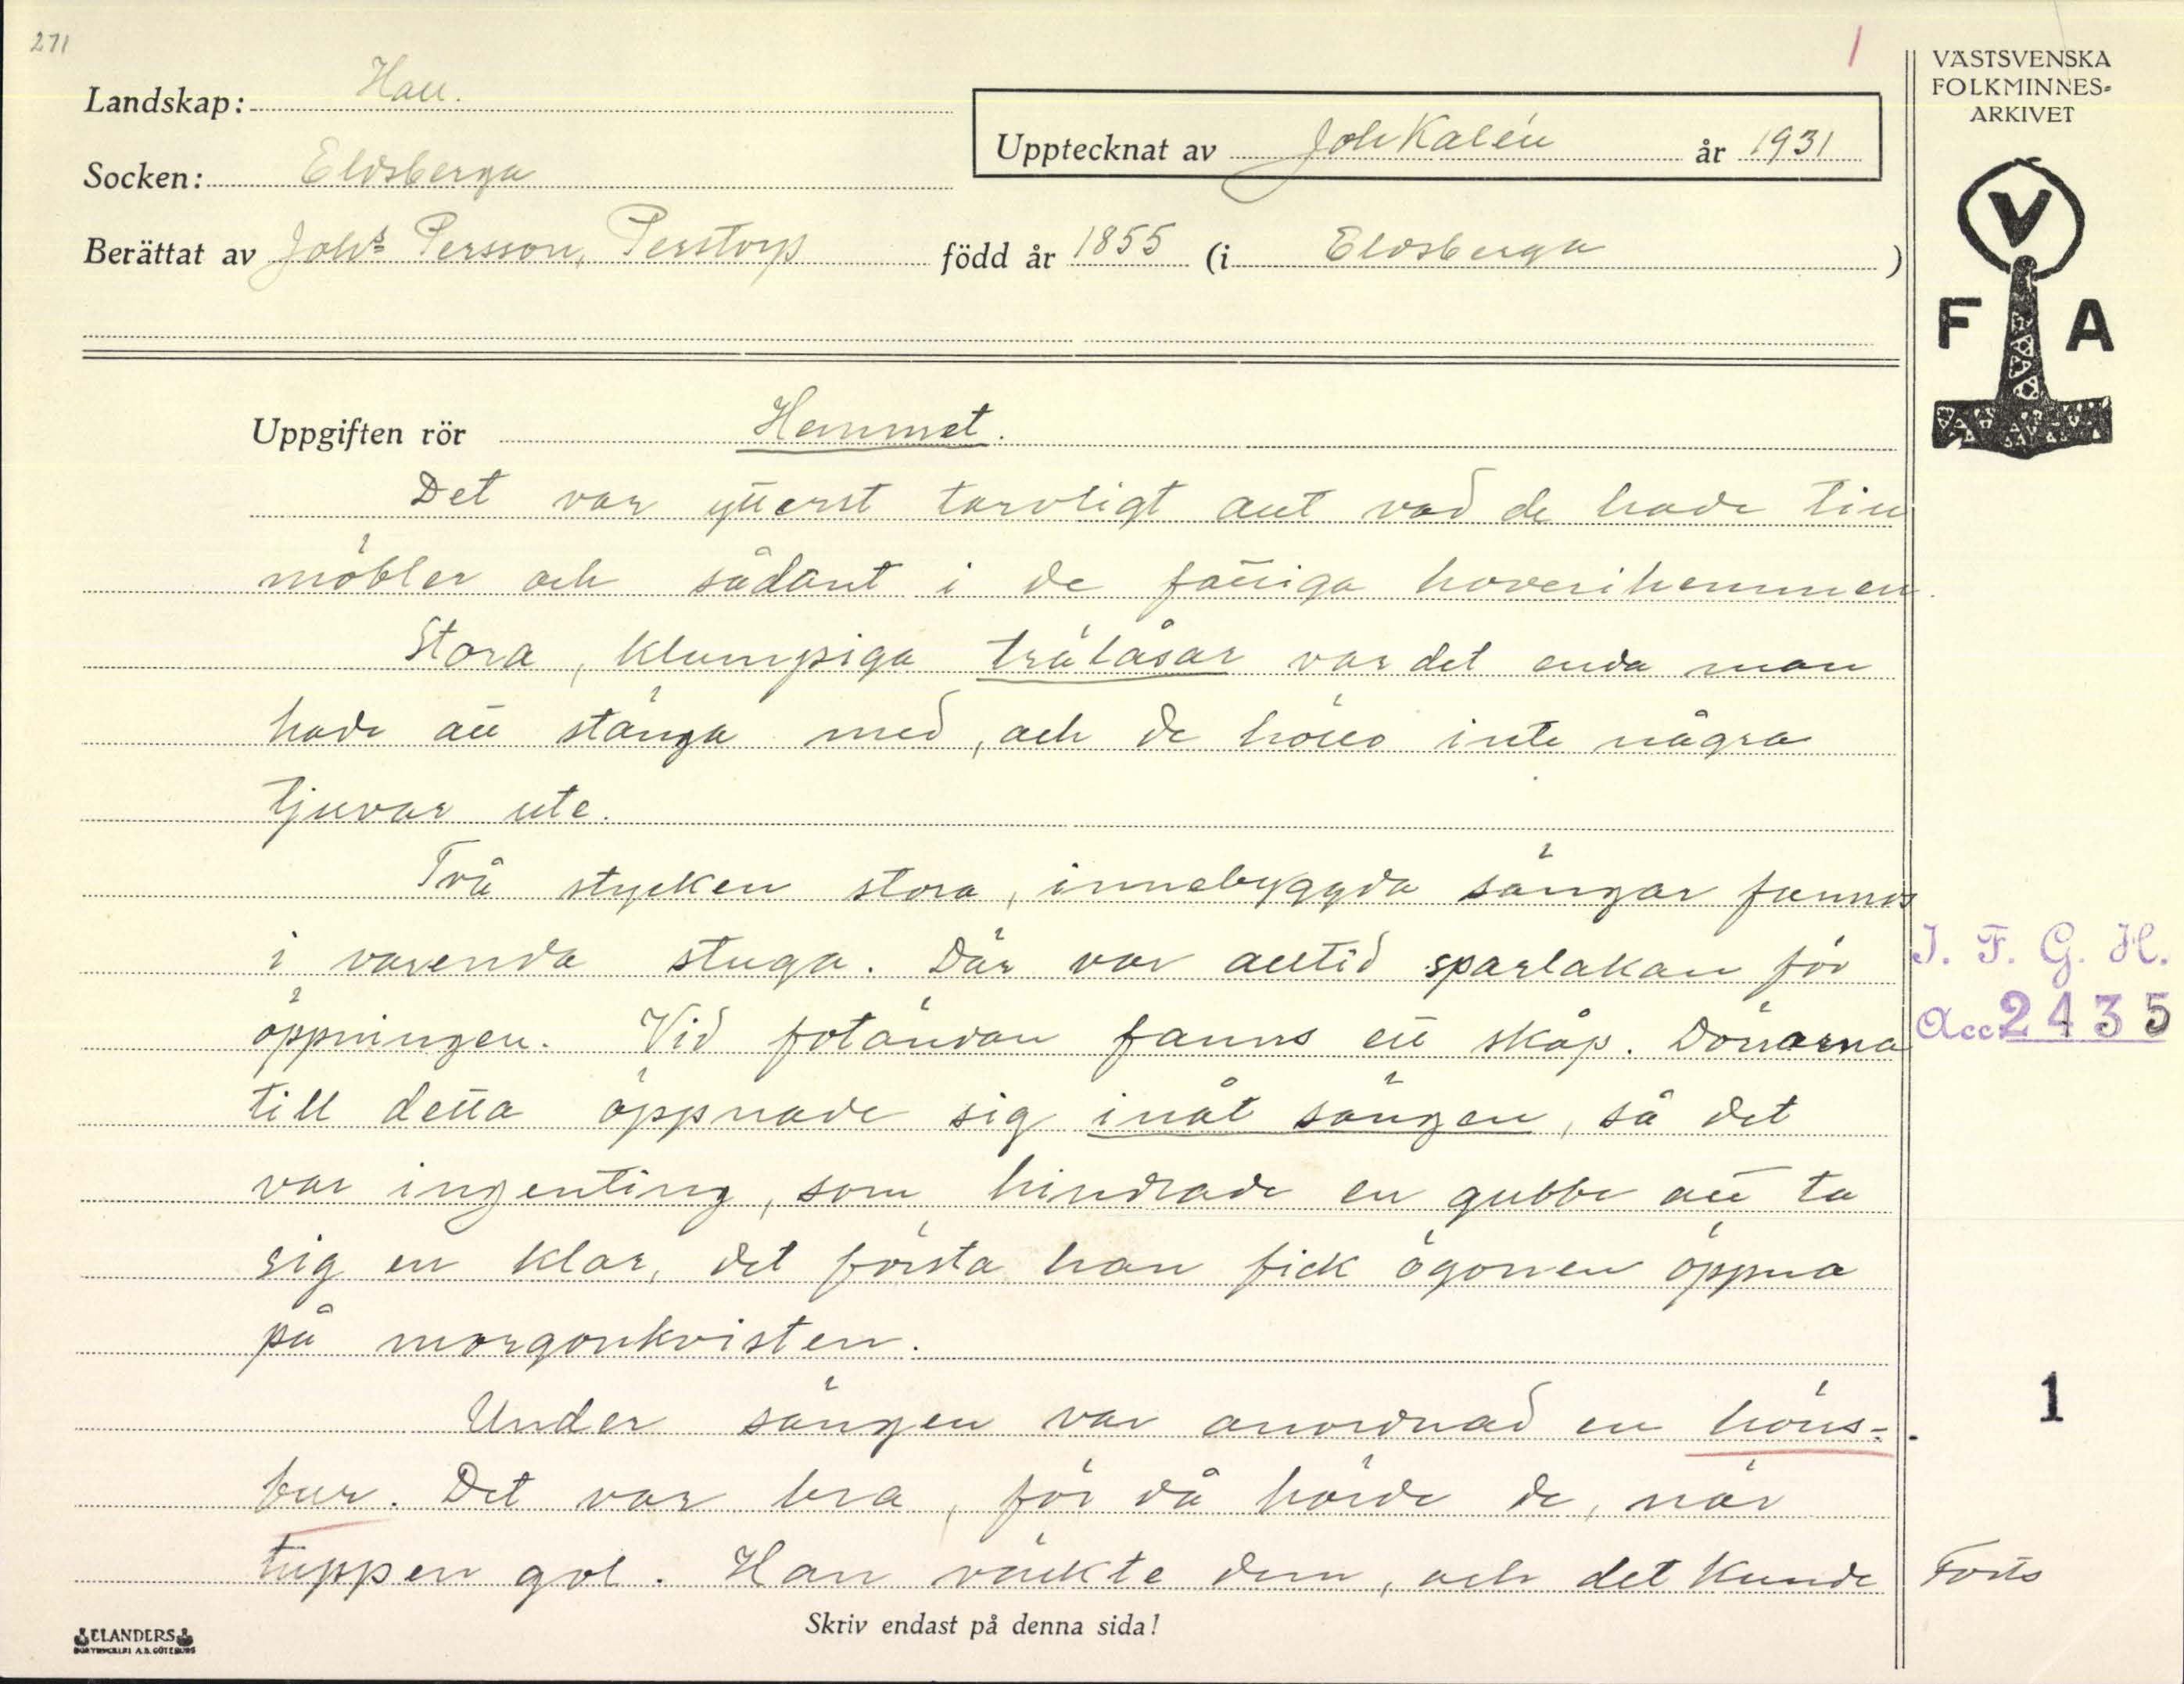 271
1
VÄSTSVENSKA
FOLKMINNES-
ARKIVET
Landskap: Hall.
Upptecknat av Joh Kalén år 1931
Socken: Eldsberga
Berättat av Johs Persson, Perstorp född år 1855 (i Eldsberga)
V
F A
Uppgiften rör Hemmet.
Det var ytterst tarvligt allt vad de hade till
möbler och sådant i de fattiga hoverihemmen.
Stora, klumpiga trälåsar var det enda man
hade att stänga med, och de höllo inte några
tjuvar ute.
Två stycken stora, innebyggda sängar funnos
i varenda stuga. Där var alltid sparlakan för
öppningen. Vid fotändan fanns ett skåp. Dörrarna
till detta öppnade sig inåt sängen, så det
var ingenting, som hindrade en gubbe att ta
sig en klar, det första han fick ögonen öppna
på morgonkvisten.
Under sängen var anordnad en höns-
bur. Det var bra, för då hörde de, när
tuppen gol. Han väckte dem, och det kunde
I. F. G. H.
Acc 2435
1
Forts
Skriv endast på denna sida!
ELANDERS
BOKTRYCKERI A.B. GÖTEBORG